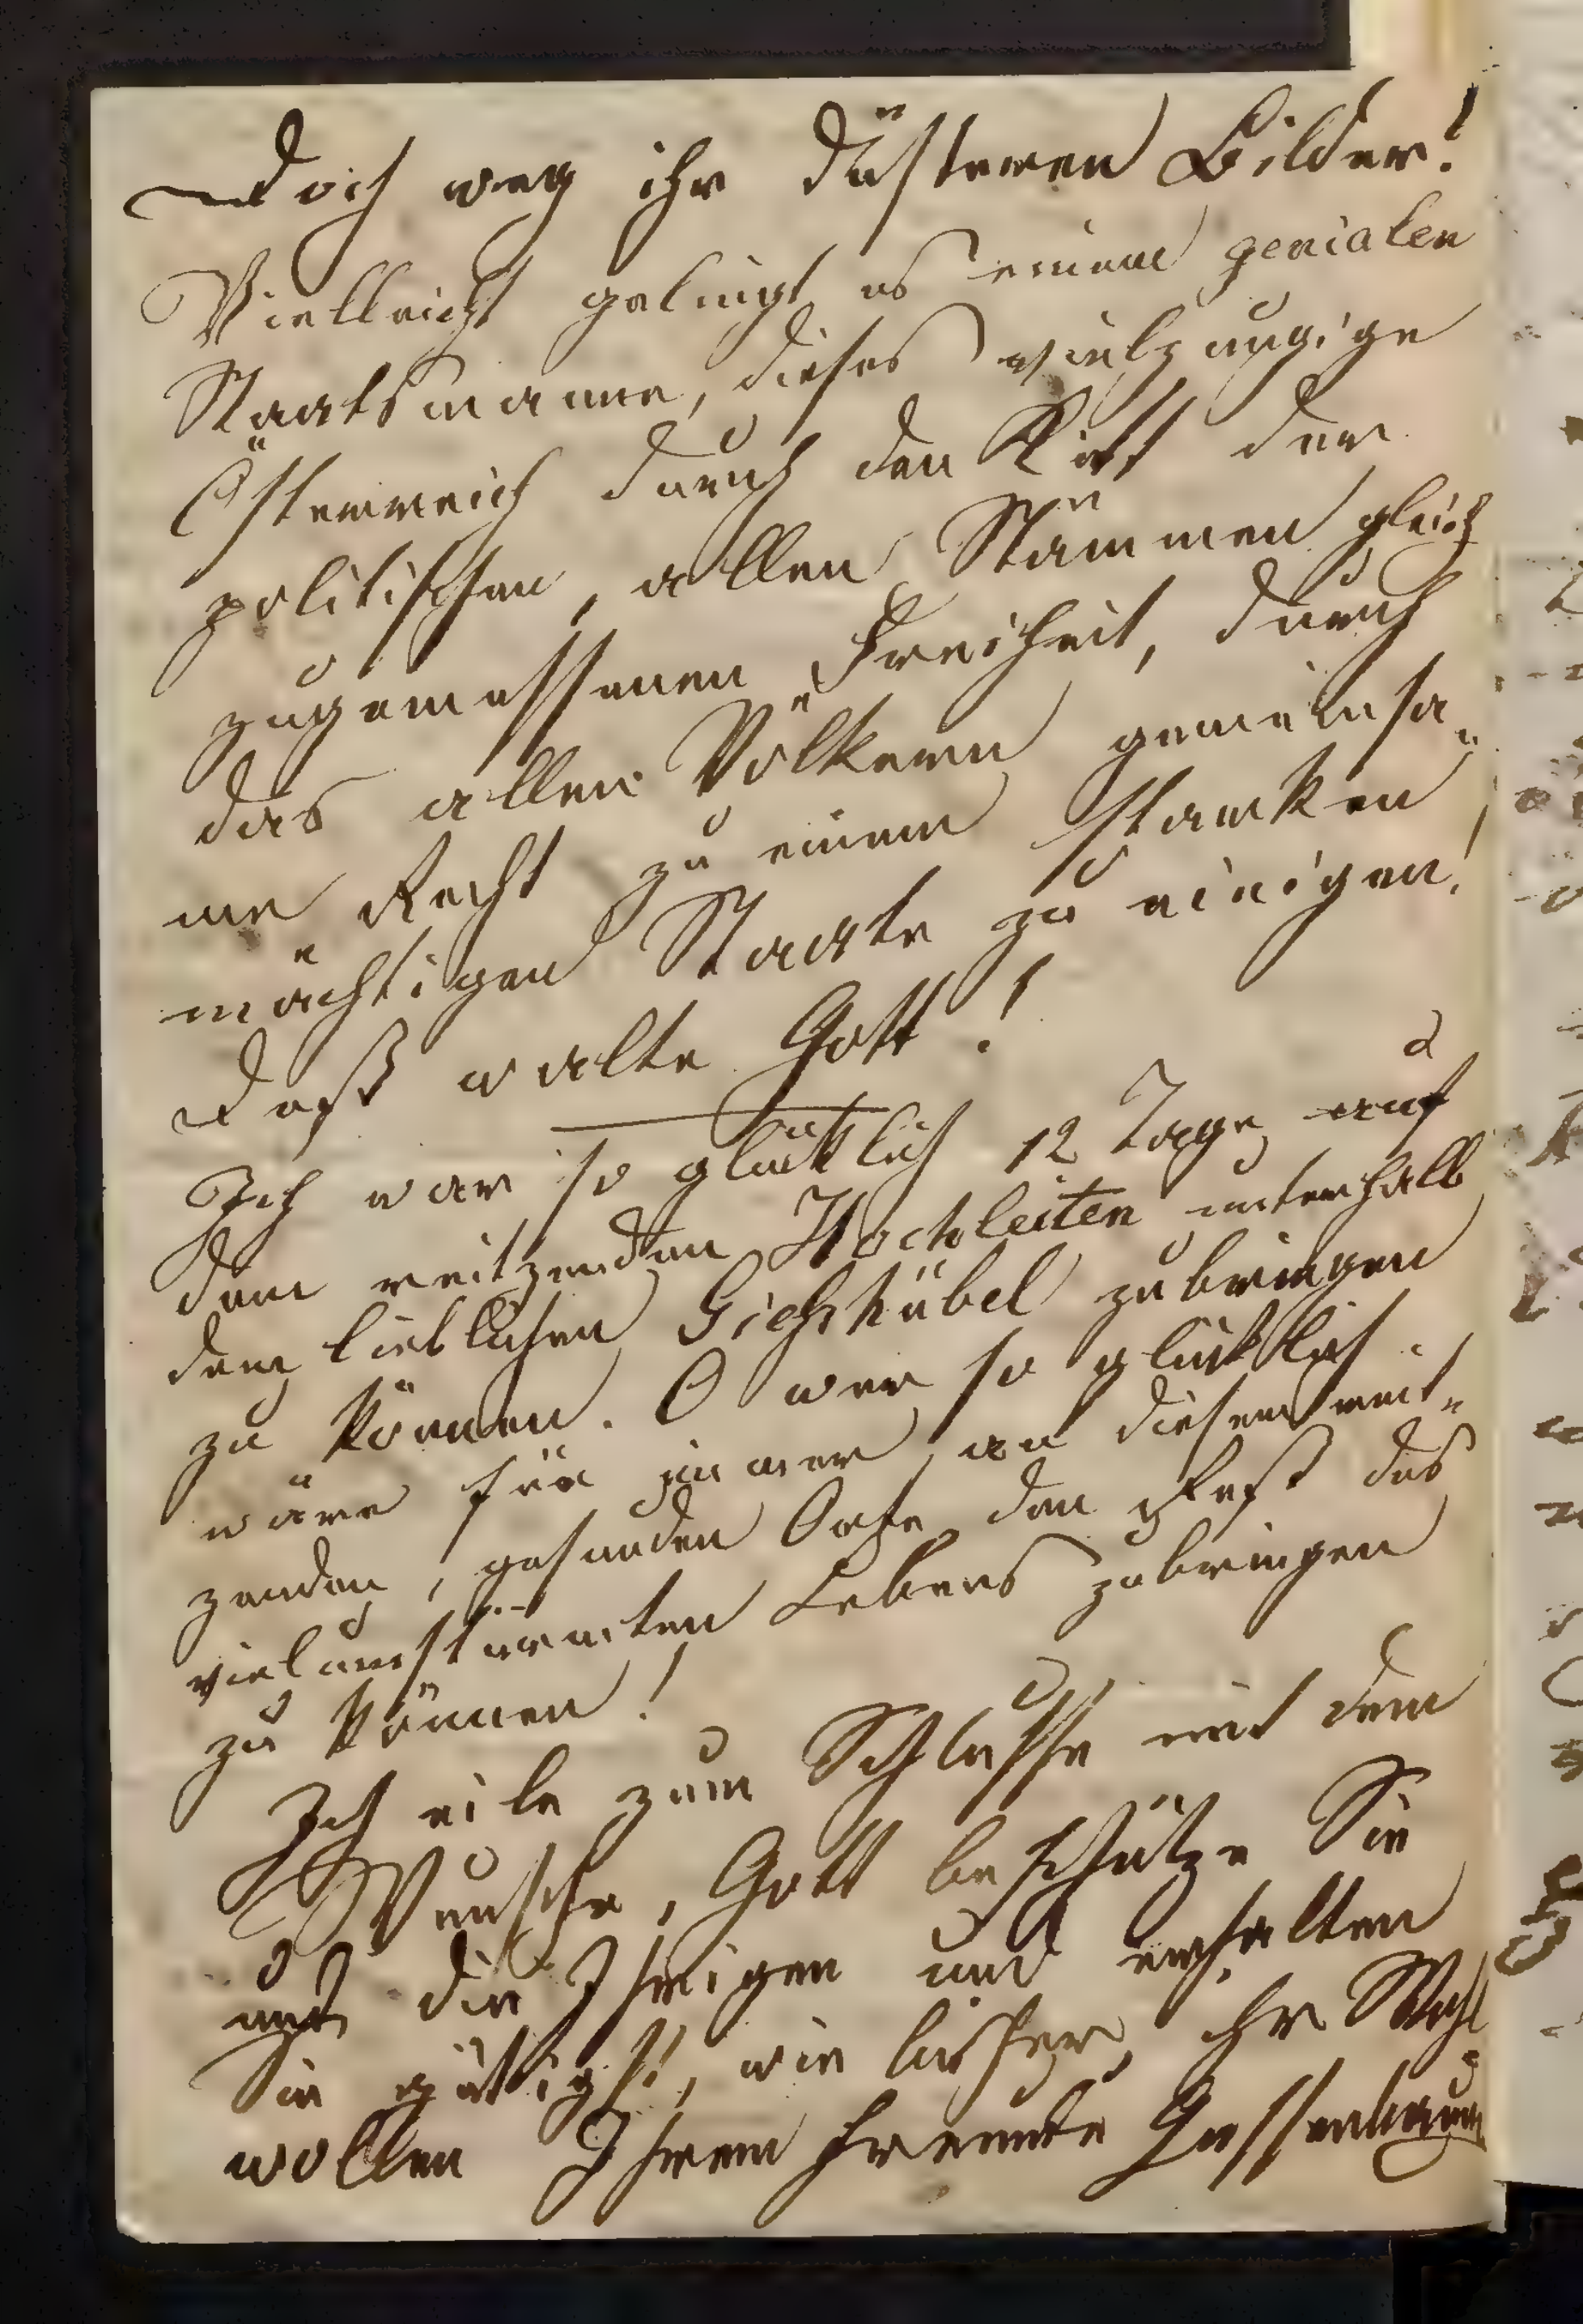 Doch weg ihr düsteren Bilder!
Vielleicht gelingt es einem genialen
Staatsmanne, dieses vielzüngige
Österreich durch den Kitt der
politischen, allen Stämmen gleich
zugemessenen Freiheit, durch
das allen Völkern gemeinsa„
me Recht zu einem starken
mächtigen Staate zu einigen!
Daß walte Gott!
Ich war so glücklich 12 Tage auf
dem reitzenden Hochleiten unterhalb
dem lieblichen Gieshübel zubringen
zu können. O wer so glücklich
wäre für immer an diesem reit„
zenden, gesunden Orte den Rest des
vielumstürmten Lebens zubringen
zu können!
Ich eile zum Schlusse mit dem
Wunsche, Gott beschütze Sie
und die Ihrigen und erhalten
Sie gütigst, wie bisher, ihr Wohl
wollen Ihrem Freunde